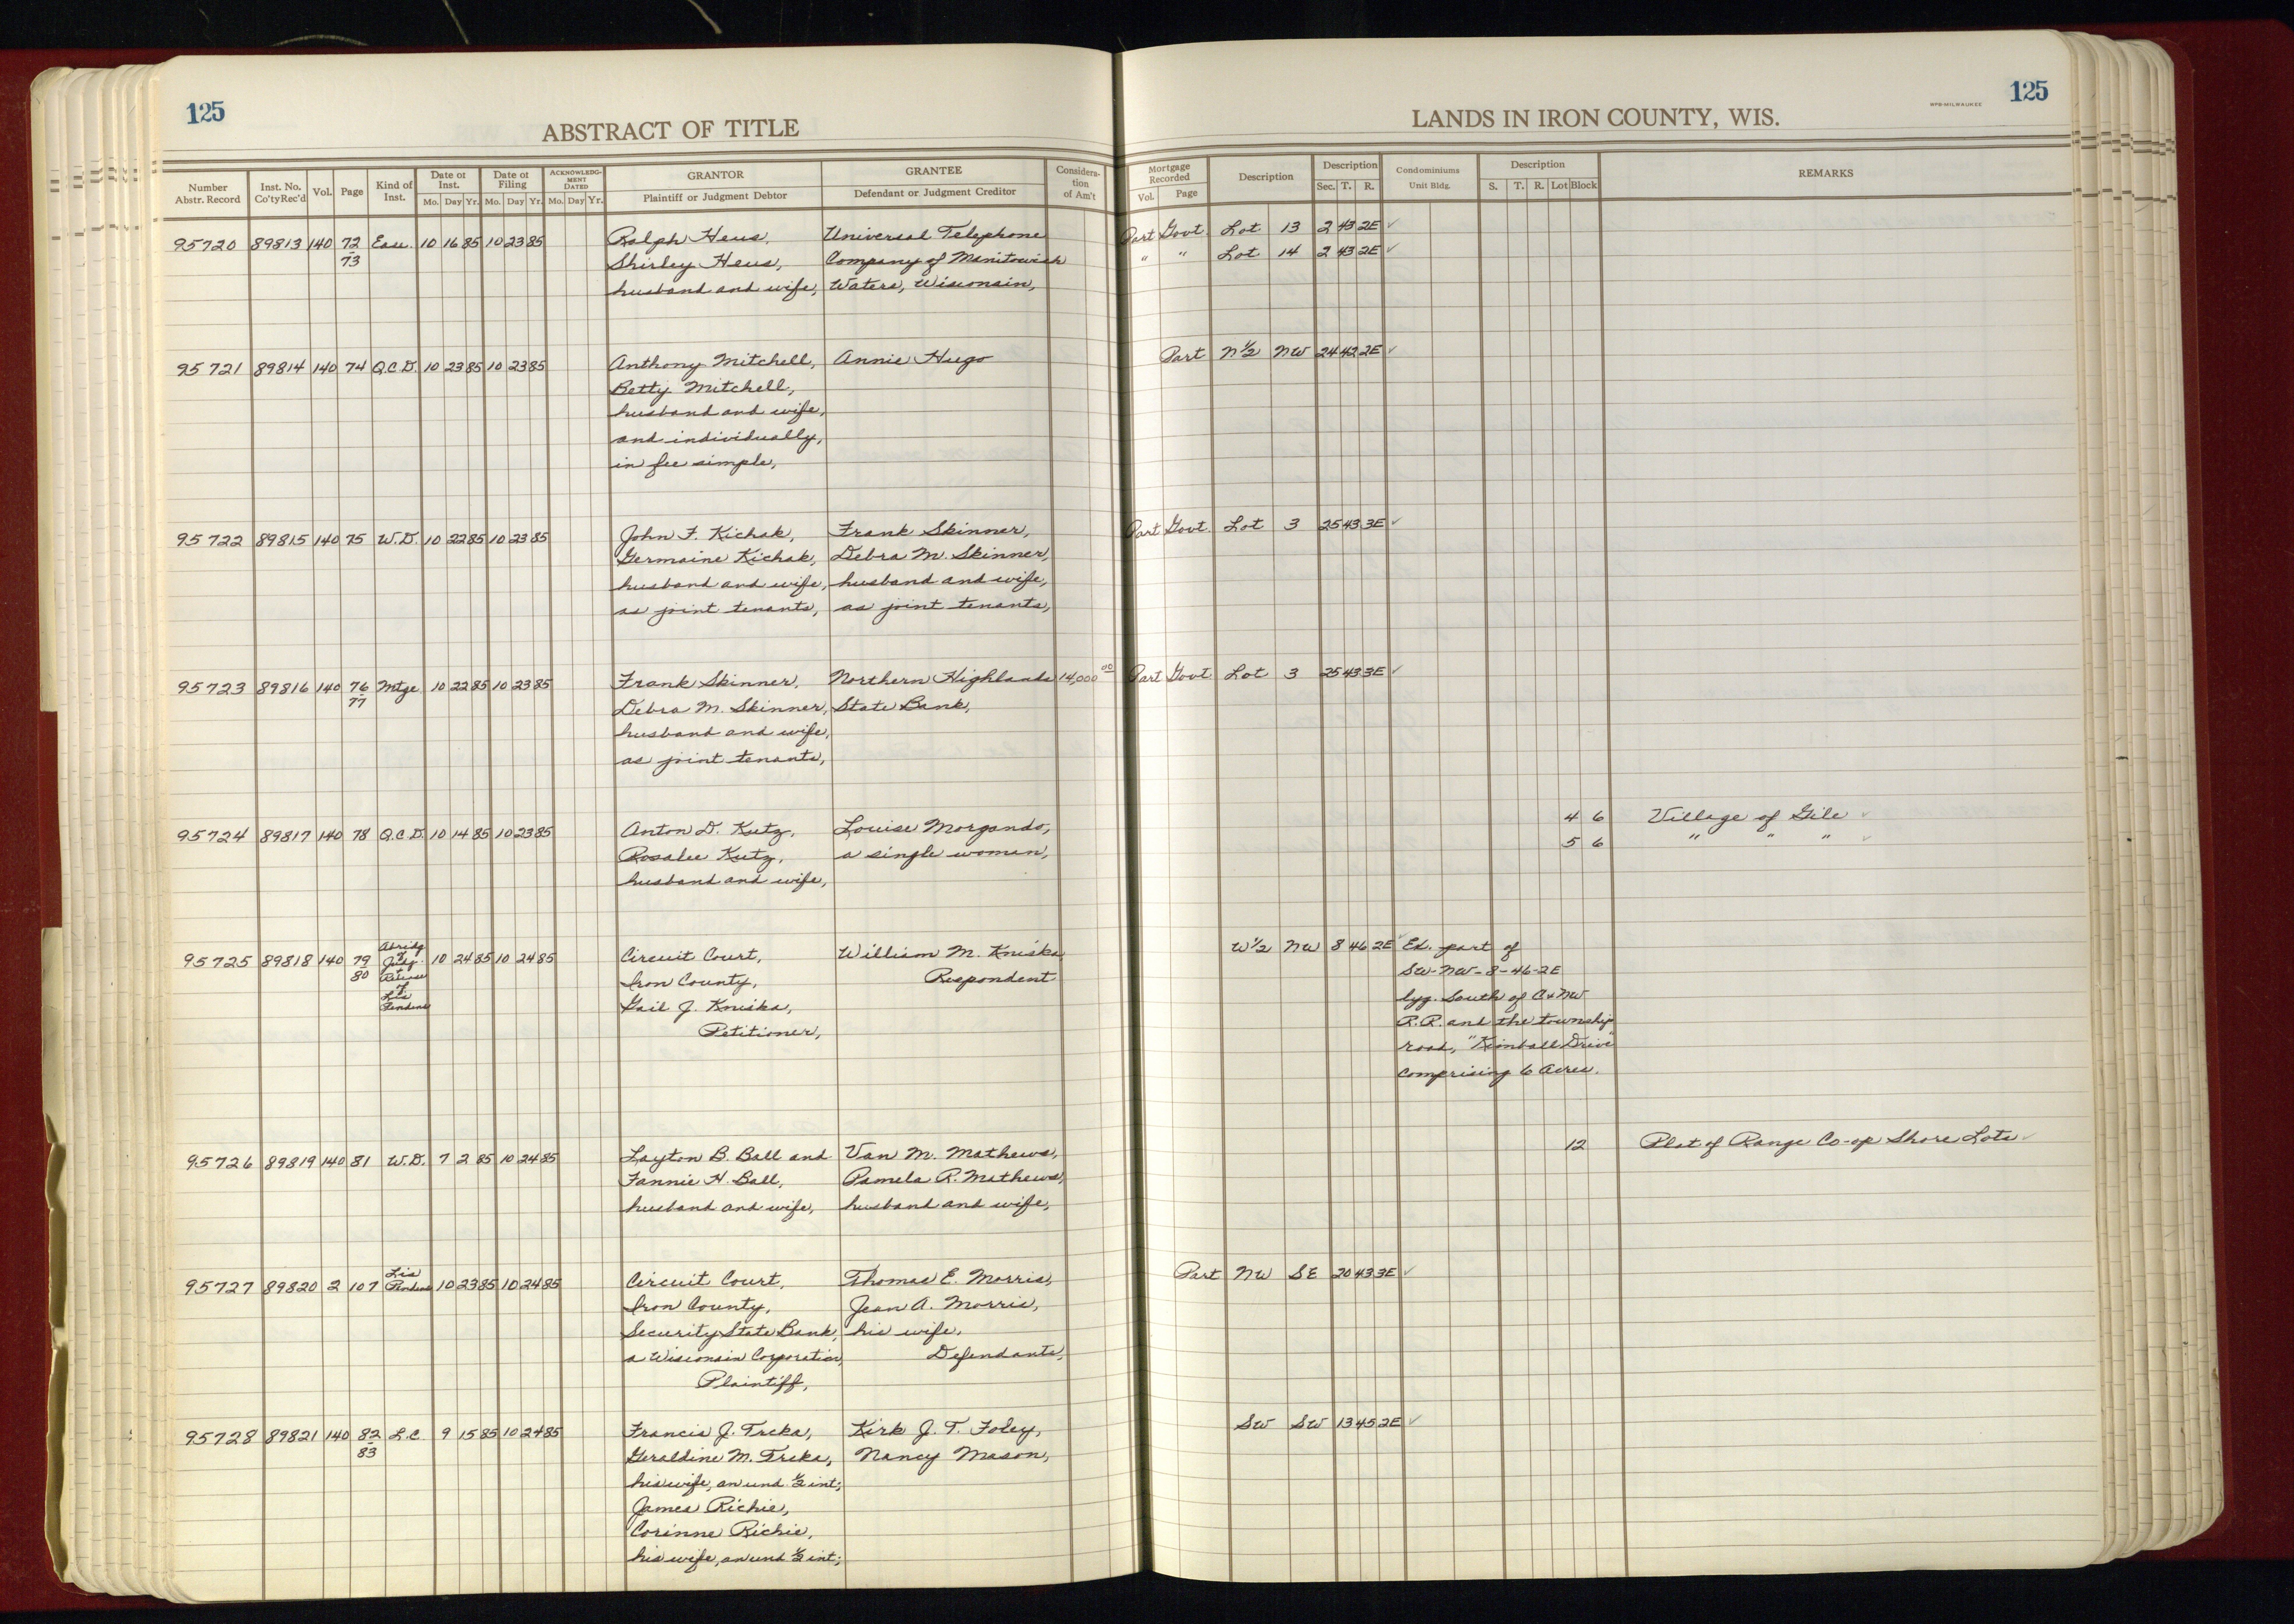 125
ABSTRACT OF TITLE
LANDS IN IRON COUNTY, WIS.
WPB-MILWAUKEE
125
Number Abstr. Record | Inst. No. Co'ty Rec'd | Vol. | Page | Kind of Inst. | Date of Inst. Mo. Day Yr. | Date of Filing Mo. Day Yr. | ACKNOWLEDGMENT DATED Mo. Day Yr. | GRANTOR Plaintiff or Judgment Debtor | GRANTEE Defendant or Judgment Creditor | Consideration of Am't | Mortgage Recorded Vol. Page | Description | Description Sec. T. R. | Condominiums Unit Bldg. | Description S. T. R. Lot Block | REMARKS
95720 89813 140 72 Ease. 10 16 85 10 23 85 Ralph Heus, Universal Telephone Part Govt. Lot 13 2 43 2E ✓
73 Shirley Heus, Company of Manitowish " " Lot 14 2 43 2E ✓
husband and wife, Waters, Wisconsin,
95721 89814 140 74 Q.C.D. 10 23 85 10 23 85 Anthony Mitchell, Annie Hugo Part N½ NW 24 42 2E ✓
Betty Mitchell,
husband and wife,
and individually,
in fee simple,
95722 89815 140 75 W.D. 10 22 85 10 23 85 John F. Kichak, Frank Skinner, Part Govt. Lot 3 25 43 3E ✓
Germaine Kichak, Debra M. Skinner,
husband and wife, husband and wife,
as joint tenants, as joint tenants,
95723 89816 140 76 Mtge. 10 22 85 10 23 85 Frank Skinner, Northern Highlands 14,000 00 Part Govt Lot 3 25 43 3E ✓
77 Debra M. Skinner, State Bank,
husband and wife,
as joint tenants,
95724 89817 140 78 Q.C.D. 10 14 85 10 23 85 Anton D. Kutz, Louise Morgando, 4 6 Village of Gile ✓
Rosalee Kutz, a single woman, 5 6 " " " ✓
husband and wife,
95725 89818 140 79 Abridg of Judg. + Release of Lis Pendens 10 24 85 10 24 85 Circuit Court, William M. Kniska W½ NW 8 46 2E ✓ Ex. part of
80 Iron County, Respondent SW-NW-8-46-2E
Gail J. Kniska, lyg. South of C+NW
Petitioner, R.R. and the township
road, "Kimball Drive"
comprising 6 Acres.
95726 89819 140 81 W.D. 7 2 85 10 24 85 Layton B. Ball and Van M. Mathews, 12 Plat of Range Co-op Shore Lots ✓
Fannie H. Ball, Pamela R. Mathews,
husband and wife, husband and wife,
95727 89820 2 107 Lis Pendens 10 23 85 10 24 85 Circuit Court, Thomas E. Morris, Part NW SE 20 43 3E ✓
Iron County, Jean A. Morris,
Security State Bank, his wife,
a Wisconsin Corporation, Defendants,
Plaintiff,
95728 89821 140 82 L.C. 9 15 85 10 24 85 Francis J. Trcka, Kirk J. T. Foley, SW SW 13 45 2E ✓
83 Geraldine M. Trcka, Nancy Mason,
his wife, an und. ½ int;
James Richie,
Corinne Richie,
his wife, an und ½ int;